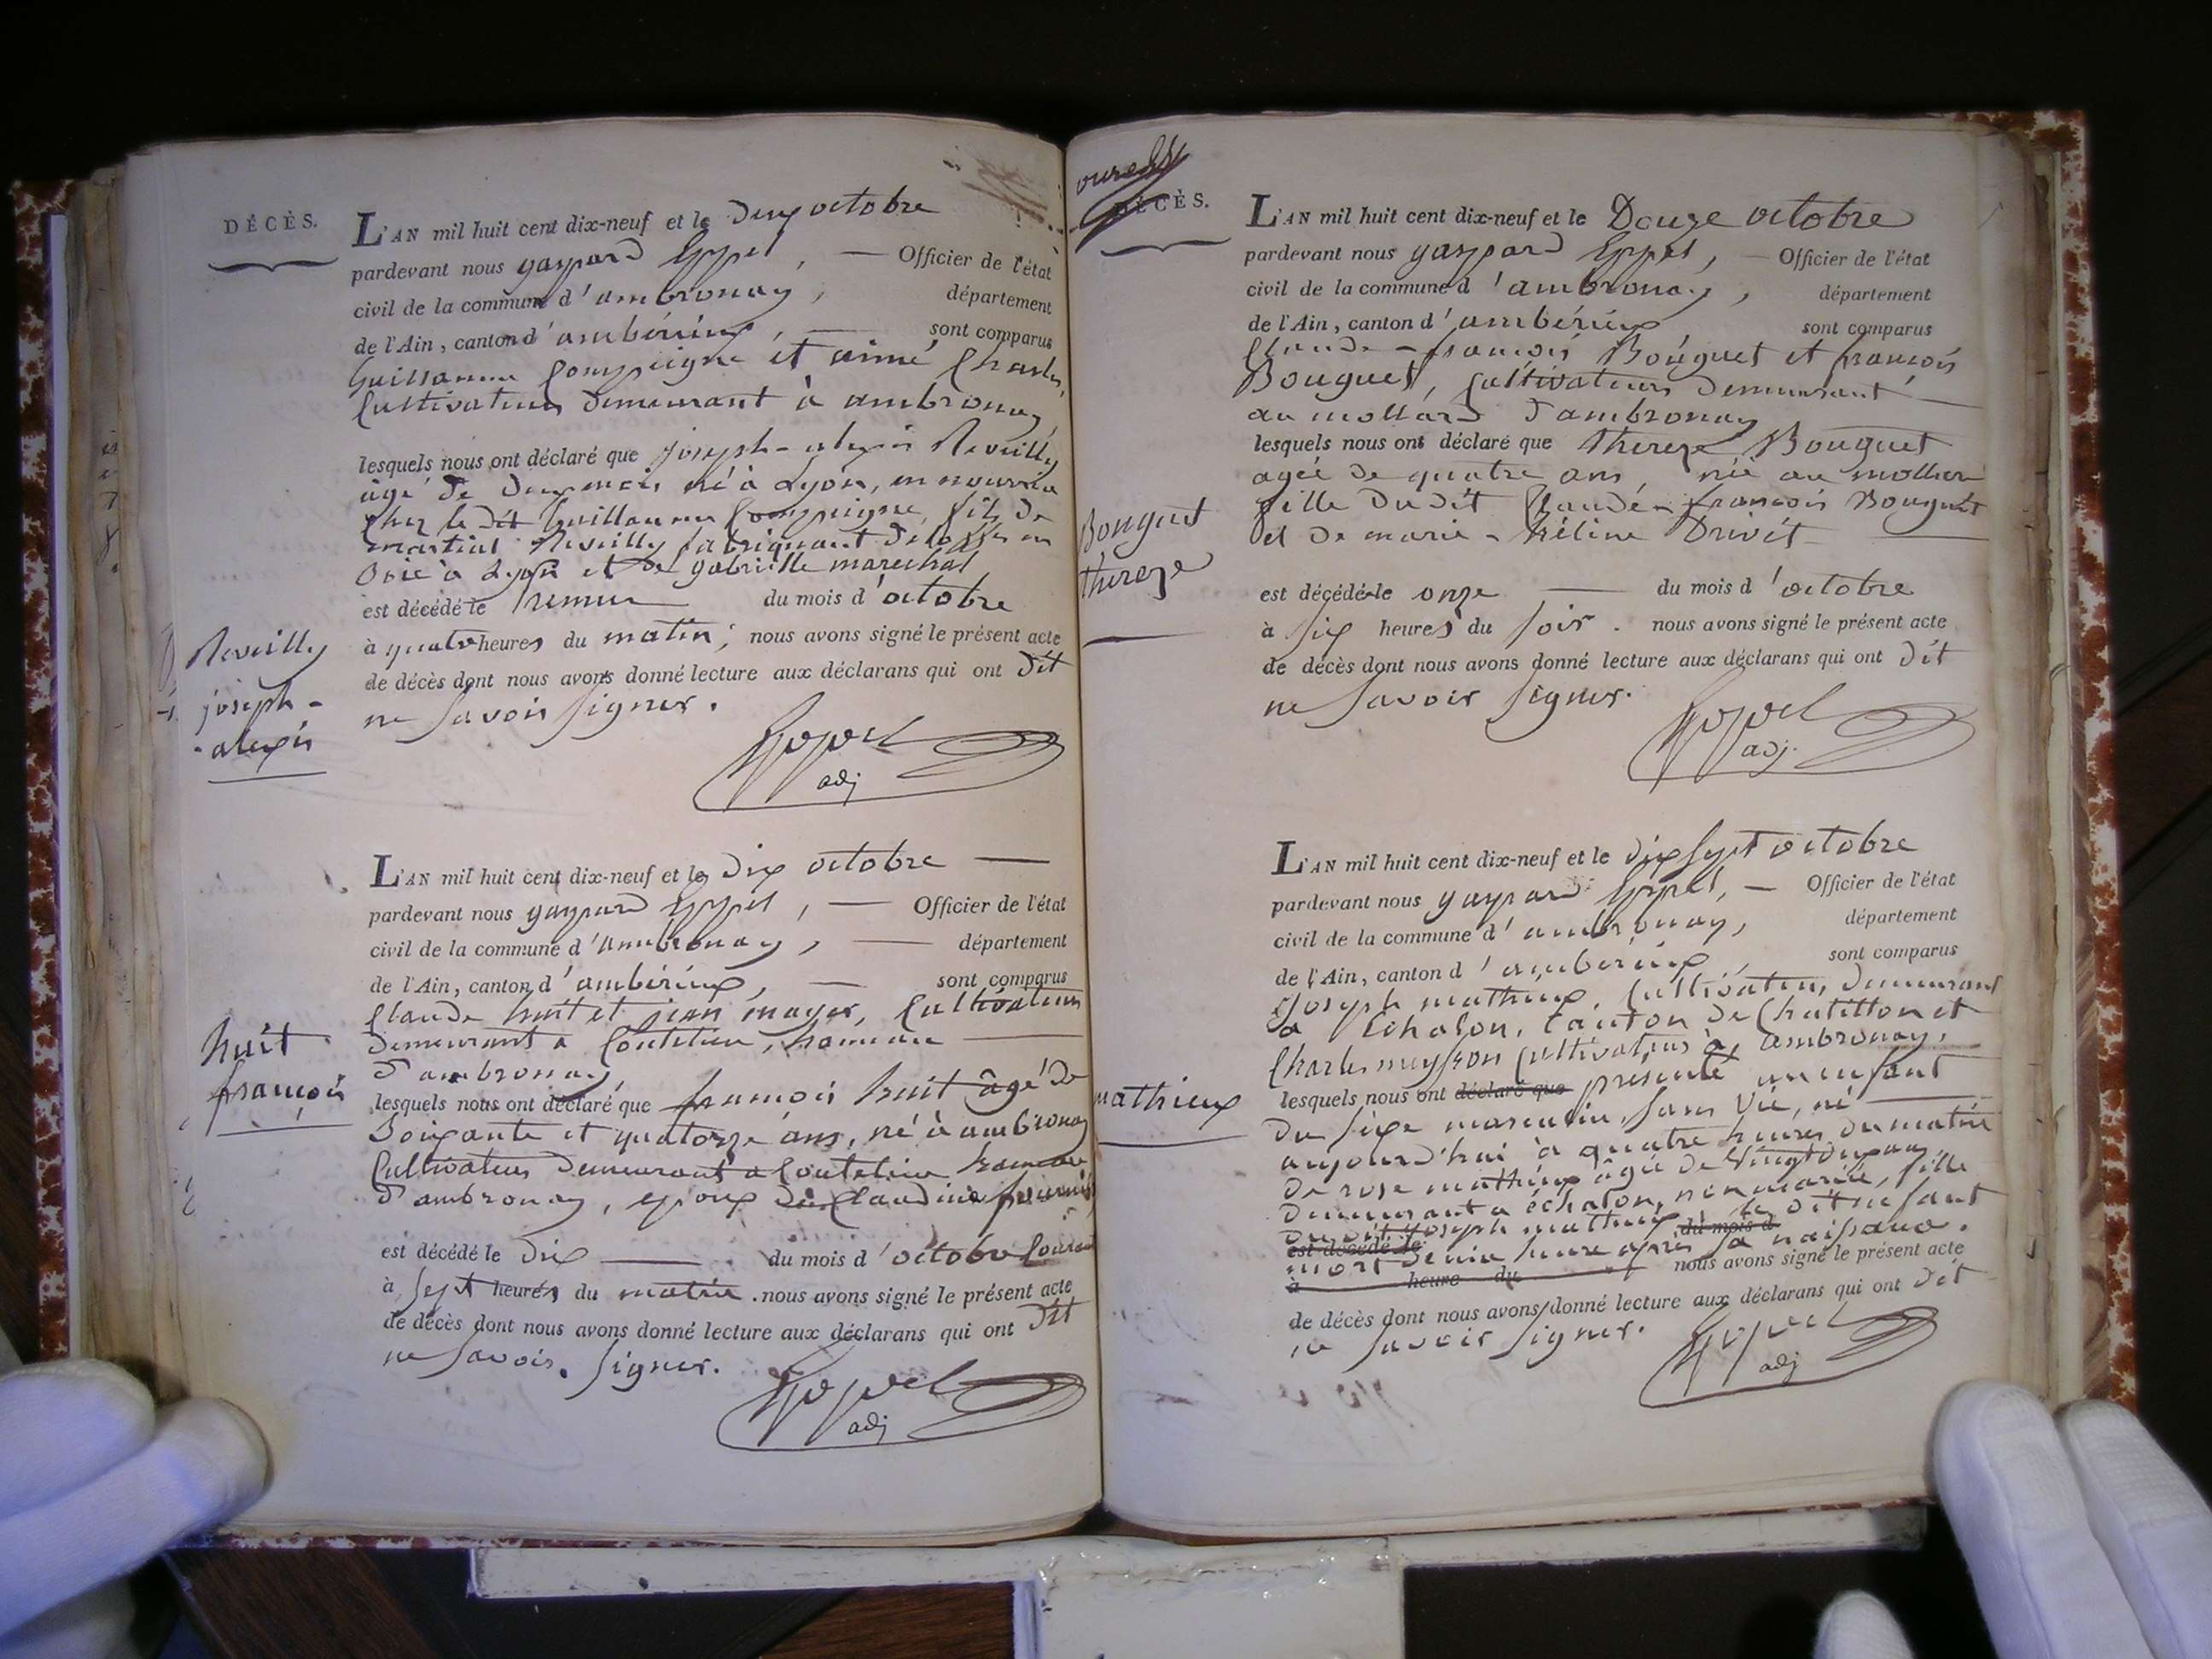 DÉCÈS.
L'AN mil huit cent dix-neuf et le Deux octobre
pardevant nous gaspard Eppel, — Officier de l'état
civil de la commune d'ambronay, département
de l'Ain, canton d'ambérieux, — sont comparus
Guillaume Compeigne et aimé Charles,
Cultivateurs demeurant à ambronay
lesquels nous ont déclaré que joseph-alexis Reveilly
âgé de deux mois né à Lyon, en nourrice
chez le dit Guillaume Compeigne, fils de
martial Reveilly fabriquant d'etoffes en
soie à Lyon et de gabrielle marechal
est décédé le premier du mois d'octobre
à quatre heures du matin; nous avons signé le présent acte
de décès dont nous avons donné lecture aux déclarans qui ont dit
ne savoir signer.
adj
Reveilly
joseph-
-alexis
L'AN mil huit cent dix-neuf et le Dix octobre —
pardevant nous gaspard Eppel, — Officier de l'état
civil de la commune d'ambronay, — département
de l'Ain, canton d'ambérieux, — sont comparus
Claude huit et jean mayer, Cultivateurs
demeurant à Coutelieu, hameau —
d'ambronay
lesquels nous ont déclaré que françois huit âgé de
Soixante et quatorze ans, né à ambronay
Cultivateur demeurant à Coutelieu hameau
d'ambronay, epoux de Claudine
est décédé le dix — du mois d'octobre courant
à sept heures du matin. nous avons signé le présent acte
de décès dont nous avons donné lecture aux déclarans qui ont dit
ne savoir signer.
adj
huit
françois
DÉCÈS.
L'AN mil huit cent dix-neuf et le Douze octobre
pardevant nous gaspard Eppel, — Officier de l'état
civil de la commune d'ambronay, département
de l'Ain, canton d'ambérieux sont comparus
Claude-françois Bouguet et françois
Bouguet, Cultivateurs demeurant —
au mollard d'ambronay
lesquels nous ont déclaré que thereze Bouguet
agée de quatre ans, née au mollard
fille dudit Claude-françois Bouguet
et de marie-héline Drivet —
est décédé le onze — du mois d'octobre
à six heures du soir. nous avons signé le présent acte
de décès dont nous avons donné lecture aux déclarans qui ont dit
ne savoir signer.
adj.
Bouguet
thereze
L'AN mil huit cent dix-neuf et le dix sept octobre
pardevant nous gaspard Eppel, — Officier de l'état
civil de la commune d'ambronay, département
de l'Ain, canton d'ambérieux, sont comparus
Joseph mathieux, Cultivateur, demeurant
à Echalon, Canton de Chatillon et
Charles meysson Cultivateur à ambronay,
lesquels nous ont déclaré que presenté un enfant
du sexe masculin, sans vie, né —
aujourd'hui à quatre heures du matin
de rose mathieux âgée de vingt deux ans
demeurant à échalon, non mariée, fille
dudit Joseph mathieux, le dit enfant
est décédé le du mois d
mort demie heure après sa naissance.
à heure du nous avons signé le présent acte
de décès dont nous avons donné lecture aux déclarans qui ont dit
ne savoir signer.
adj
mathieux